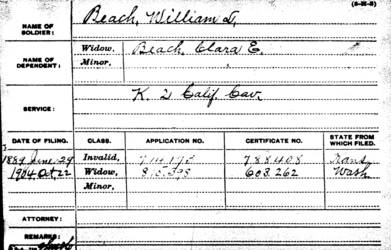 (3-11-5)
NAME OF SOLDIER: Beach, William D.
NAME OF DEPENDENT: Widow, Beach, Clara E.
Minor,
SERVICE: K. 2 Calif. Cav.
DATE OF FILING. CLASS. APPLICATION NO. CERTIFICATE NO. STATE FROM WHICH FILED.
1889 June 29 Invalid, 788408 Kans
1904 Oct 22 Widow, 603.262 Wash
Minor,
ATTORNEY:
REMARKS: